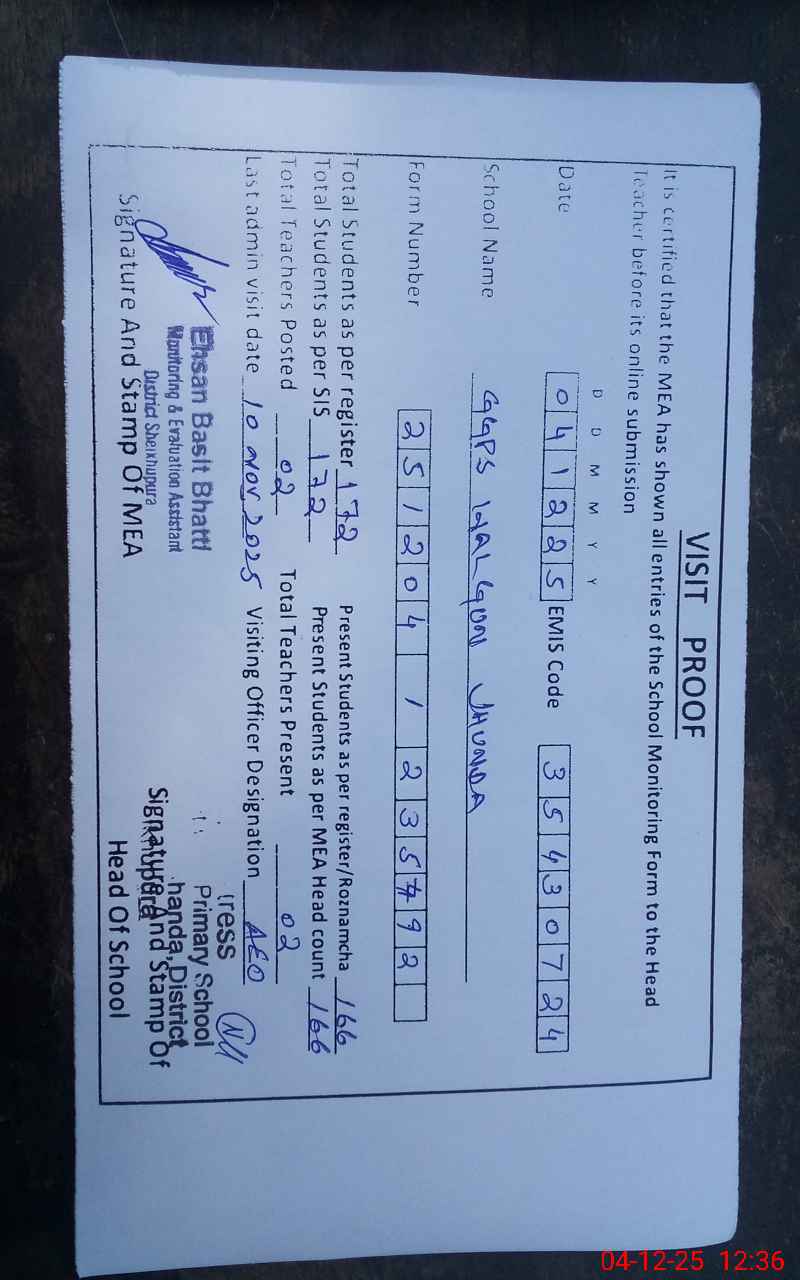 VISIT PROOF
It is certified that the MEA has shown all entries of the School Monitoring Form to the Head
Teacher before its online submission
D D M M Y Y
Date 041225 EMIS Code 35430724
School Name GGPS WALGON JHUNDA
Form Number
Total Students as per register 172 Present Students as per register/Roznamcha 166
Total Students as per SIS 172 Present Students as per MEA Head count 166
Total Teachers Posted 02 Total Teachers Present 02
Last admin visit date 10 NOV 2025 Visiting Officer Designation AEO
Ehsan Basit Bhatti
Monitoring & Evaluation Assistant
District Sheikhupura
Signature And Stamp Of MEA
tress
Primary School
handa, District
Signature And Stamp Of
Head Of School
04-12-25 12:36